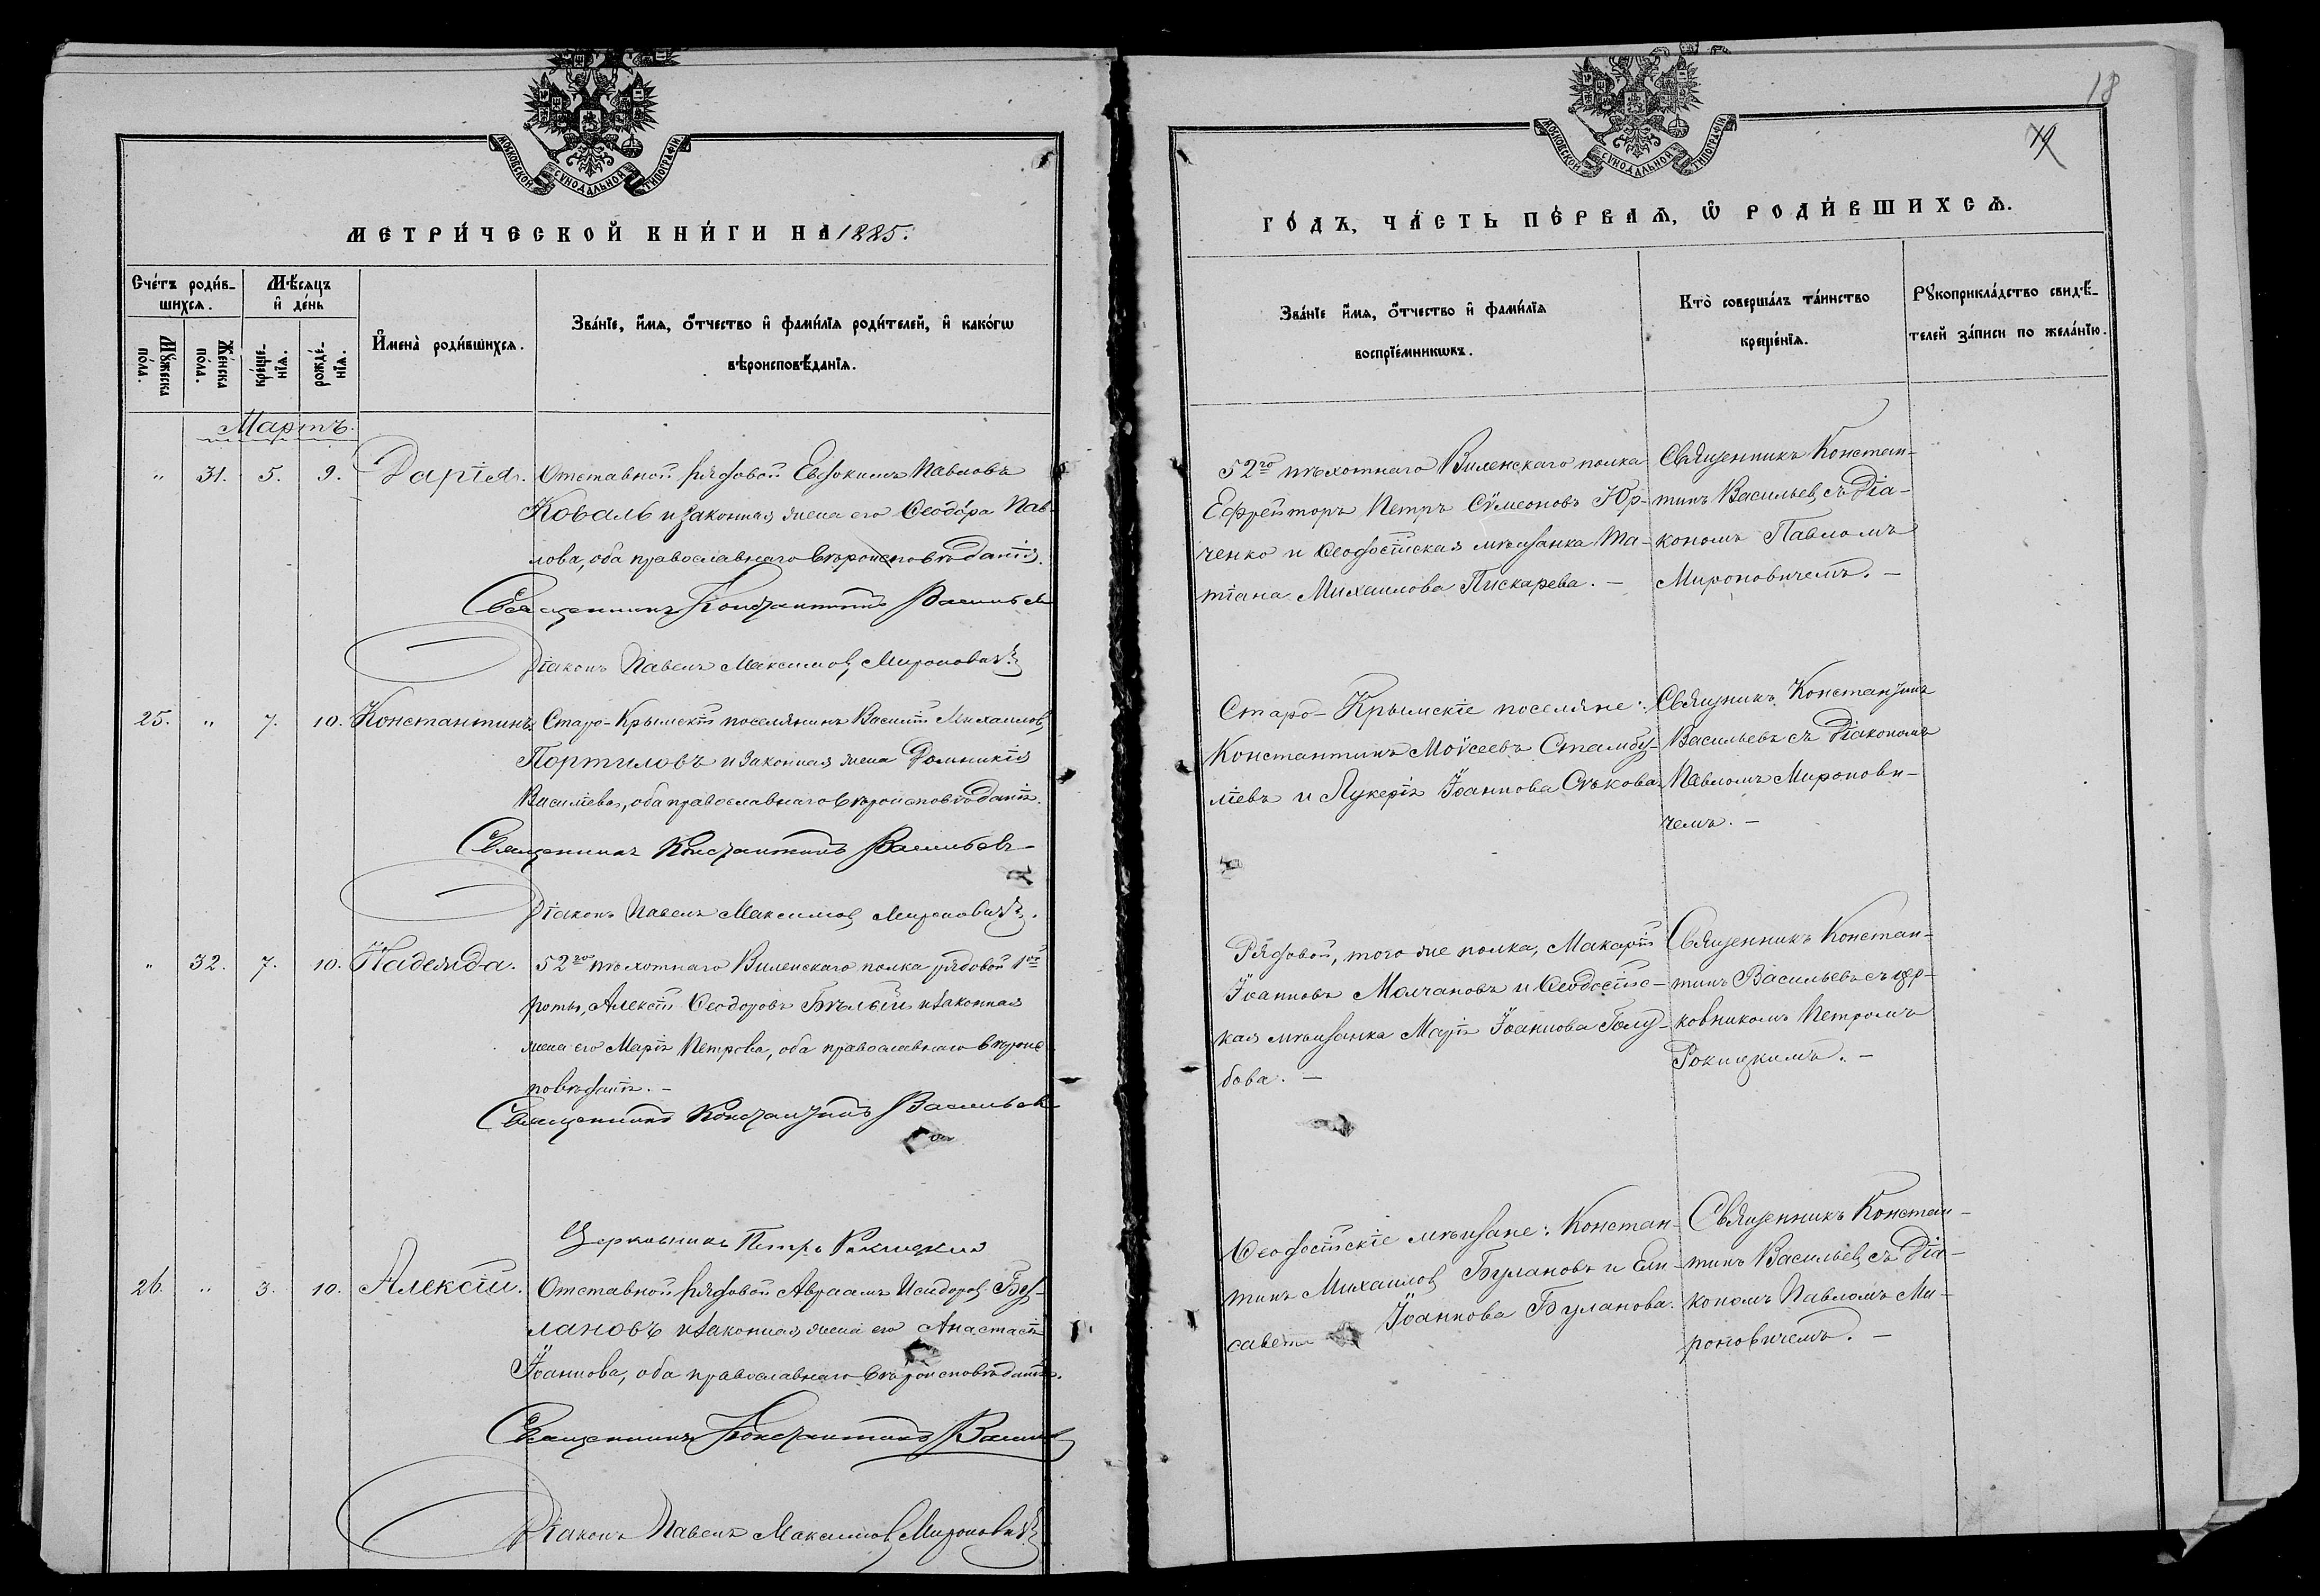 МОСКОВСКОЙ СѴНОДАЛЬНОЙ ТИПОГРАФІИ.
МЕТРИ́ЧЕСКОЙ КНИ́ГИ НА 1885.
Сче́тъ роди́в-
шихсѧ.
Мѣ́сѧцъ
и҆ де́нь
Мꙋ́жеска
по́ла.
Же́нска
по́ла.
креще́-
нїѧ.
рожде́-
нїѧ.
И҆мена̀ роди́вшихсѧ.
Зва́нїе, и҆́мѧ, ѻ҆́тчество и҆ фами́лїѧ роди́телей, и҆ како́гѡ
вѣроисповѣ́данїѧ.
Мартъ.
" 31. 5. 9. Дарія.
Отставной рядовой Евдокимъ Павловъ
Коваль и законная жена его Ѳеодора Пав-
лова, оба православнаго вѣроисповѣданія.
Священникъ Константинъ Васильев
Діаконъ Павелъ Максимов Миронович
25. " 7. 10. Константинъ
Старо-Крымскій поселянинъ Василій Михаилов
Портиловъ и законная жена Домникія
Василіева, оба православнаго вѣроисповѣданія.
Священникъ Константинъ Васильевъ
Діаконъ Павелъ Максимов Миронович.
" 32. 7. 10. Надежда.
52го пѣхотнаго Виленскаго полка рядовой 1ой
роты, Алексій Ѳеодоровъ Бѣлый и законная
жена его Марія Петрова, оба православнаго вѣроис
повѣданія. –
Священникъ Константинъ Васильев
Церковникъ Петръ Рокицкій
26. " 3. 10. Алексій.
Отставной рядовой Авраамъ Исидоров Бу-
лановъ и законная жена его Анастасія
Іоаннова, оба православнаго вѣроисповѣданія.
Священникъ Константинъ Васильев
Діаконъ Павелъ Максимов Миронович
18
19
МОСКОВСКОЙ СѴНОДАЛЬНОЙ ТИПОГРАФІИ.
ГО́ДЪ, ЧА́СТЬ ПЕ́РВАѦ, Ѽ РОДИ́ВШИХСѦ.
Зва́нїе и҆́мѧ, ѻ҆́тчество и҆ фами́лїѧ
воспрїе́мникѡвъ.
Кто̀ соверша́лъ та́инство
креще́нїѧ.
Рꙋкоприкла́дство свидѣ́-
телей за́писи по жела́нїю.
52го пѣхотнаго Виленскаго полка
Ефрейторъ Петръ Сѵмеоновъ Юр-
ченко и Ѳеодосійская мѣщанка Та-
тіана Михаилова Пискарева. –
Священникъ Констан-
тинъ Васильев съ Діа-
кономъ Павломъ
Мироновичемъ. –
Старо-Крымскіе поселяне:
Константинъ Моѵсеевъ Стамбу-
ліевъ и Лукерія Іоаннова Сѣкова
Священникъ Константинъ
Васильевъ съ Діакономъ
Павломъ Миронови-
чемъ. –
Рядовой, того же полка, Макарій
Іоанновъ Молчановъ и Ѳеодосійс-
кая мѣщанка Марія Іоаннова Голу-
бова. –
Священникъ Констан-
тинъ Васильевъ съ цер-
ковникомъ Петромъ
Рокицкимъ. –
Ѳеодосійскіе мѣщане: Констан-
тинъ Михаилов Булановъ и Ели-
савета Іоаннова Буланова.
Священникъ Констан-
тинъ Васильев съ Діа-
кономъ Павломъ Ми-
роновичемъ. –